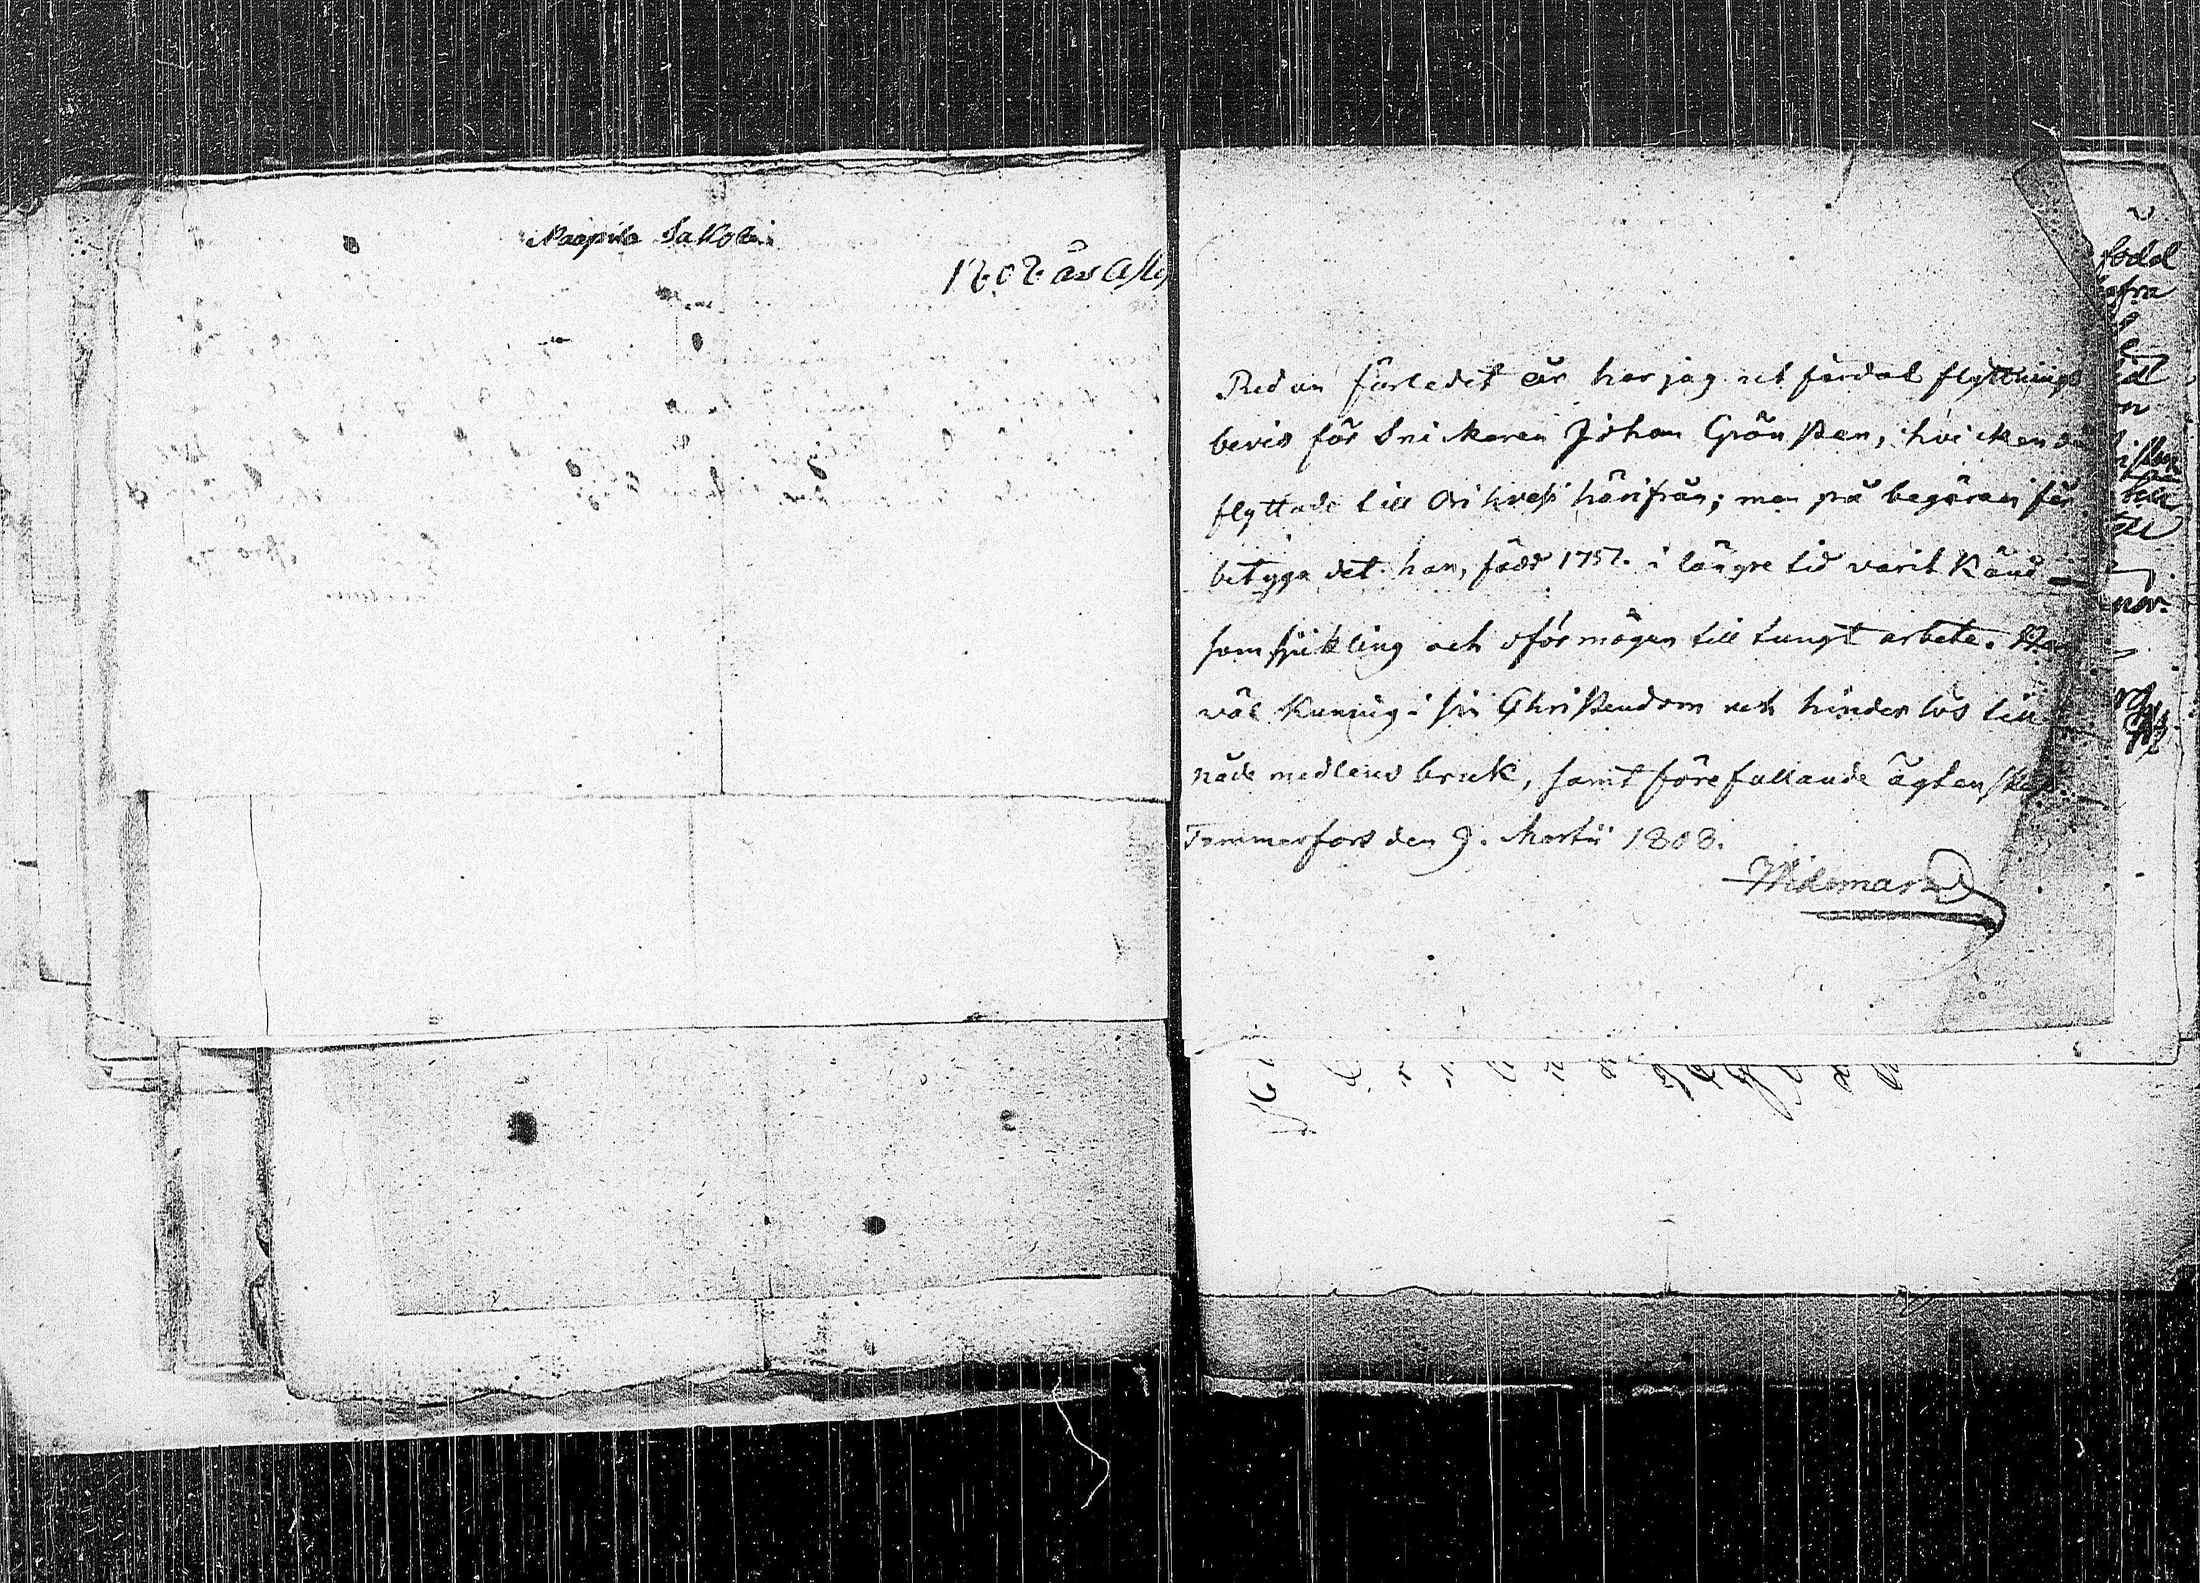 Paapila Jakobi
1808 års
Redan förledet år har jag utfärdat flyttnings
bevis för Snickaren Johan Grönsten, hvilken då
flyttade till Orihvesi härifrån; men på begäran får
betyga det han, född 1757. i längre tid varit känd
som sjukling och oförmögen till tungt arbete. Han
väl kunnig i sin Christendom och hinderlös till
nådemedlens bruk, samt förefallande ägtenskap.
Tammerfors den 9. Martii 1808.
Widemark
född